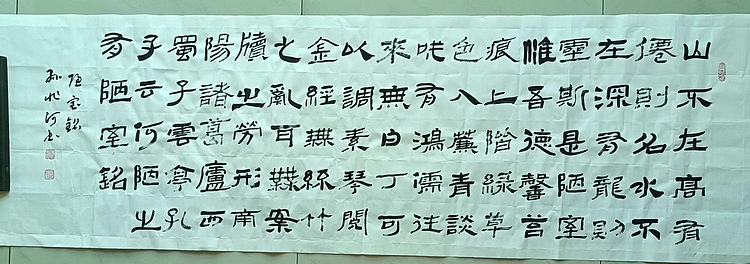 山不在高有
僊則名水不
在深有龍則
靈斯是陋室
惟吾德馨苔
痕上階緑草
色入簾青談
咲有鴻儒往
來無白丁可
以調素琴閲
金經無絲竹
之亂耳無案
牘之勞形南
陽諸葛廬西
蜀子雲亭孔
子云何陋之
有陋室銘
陋室銘